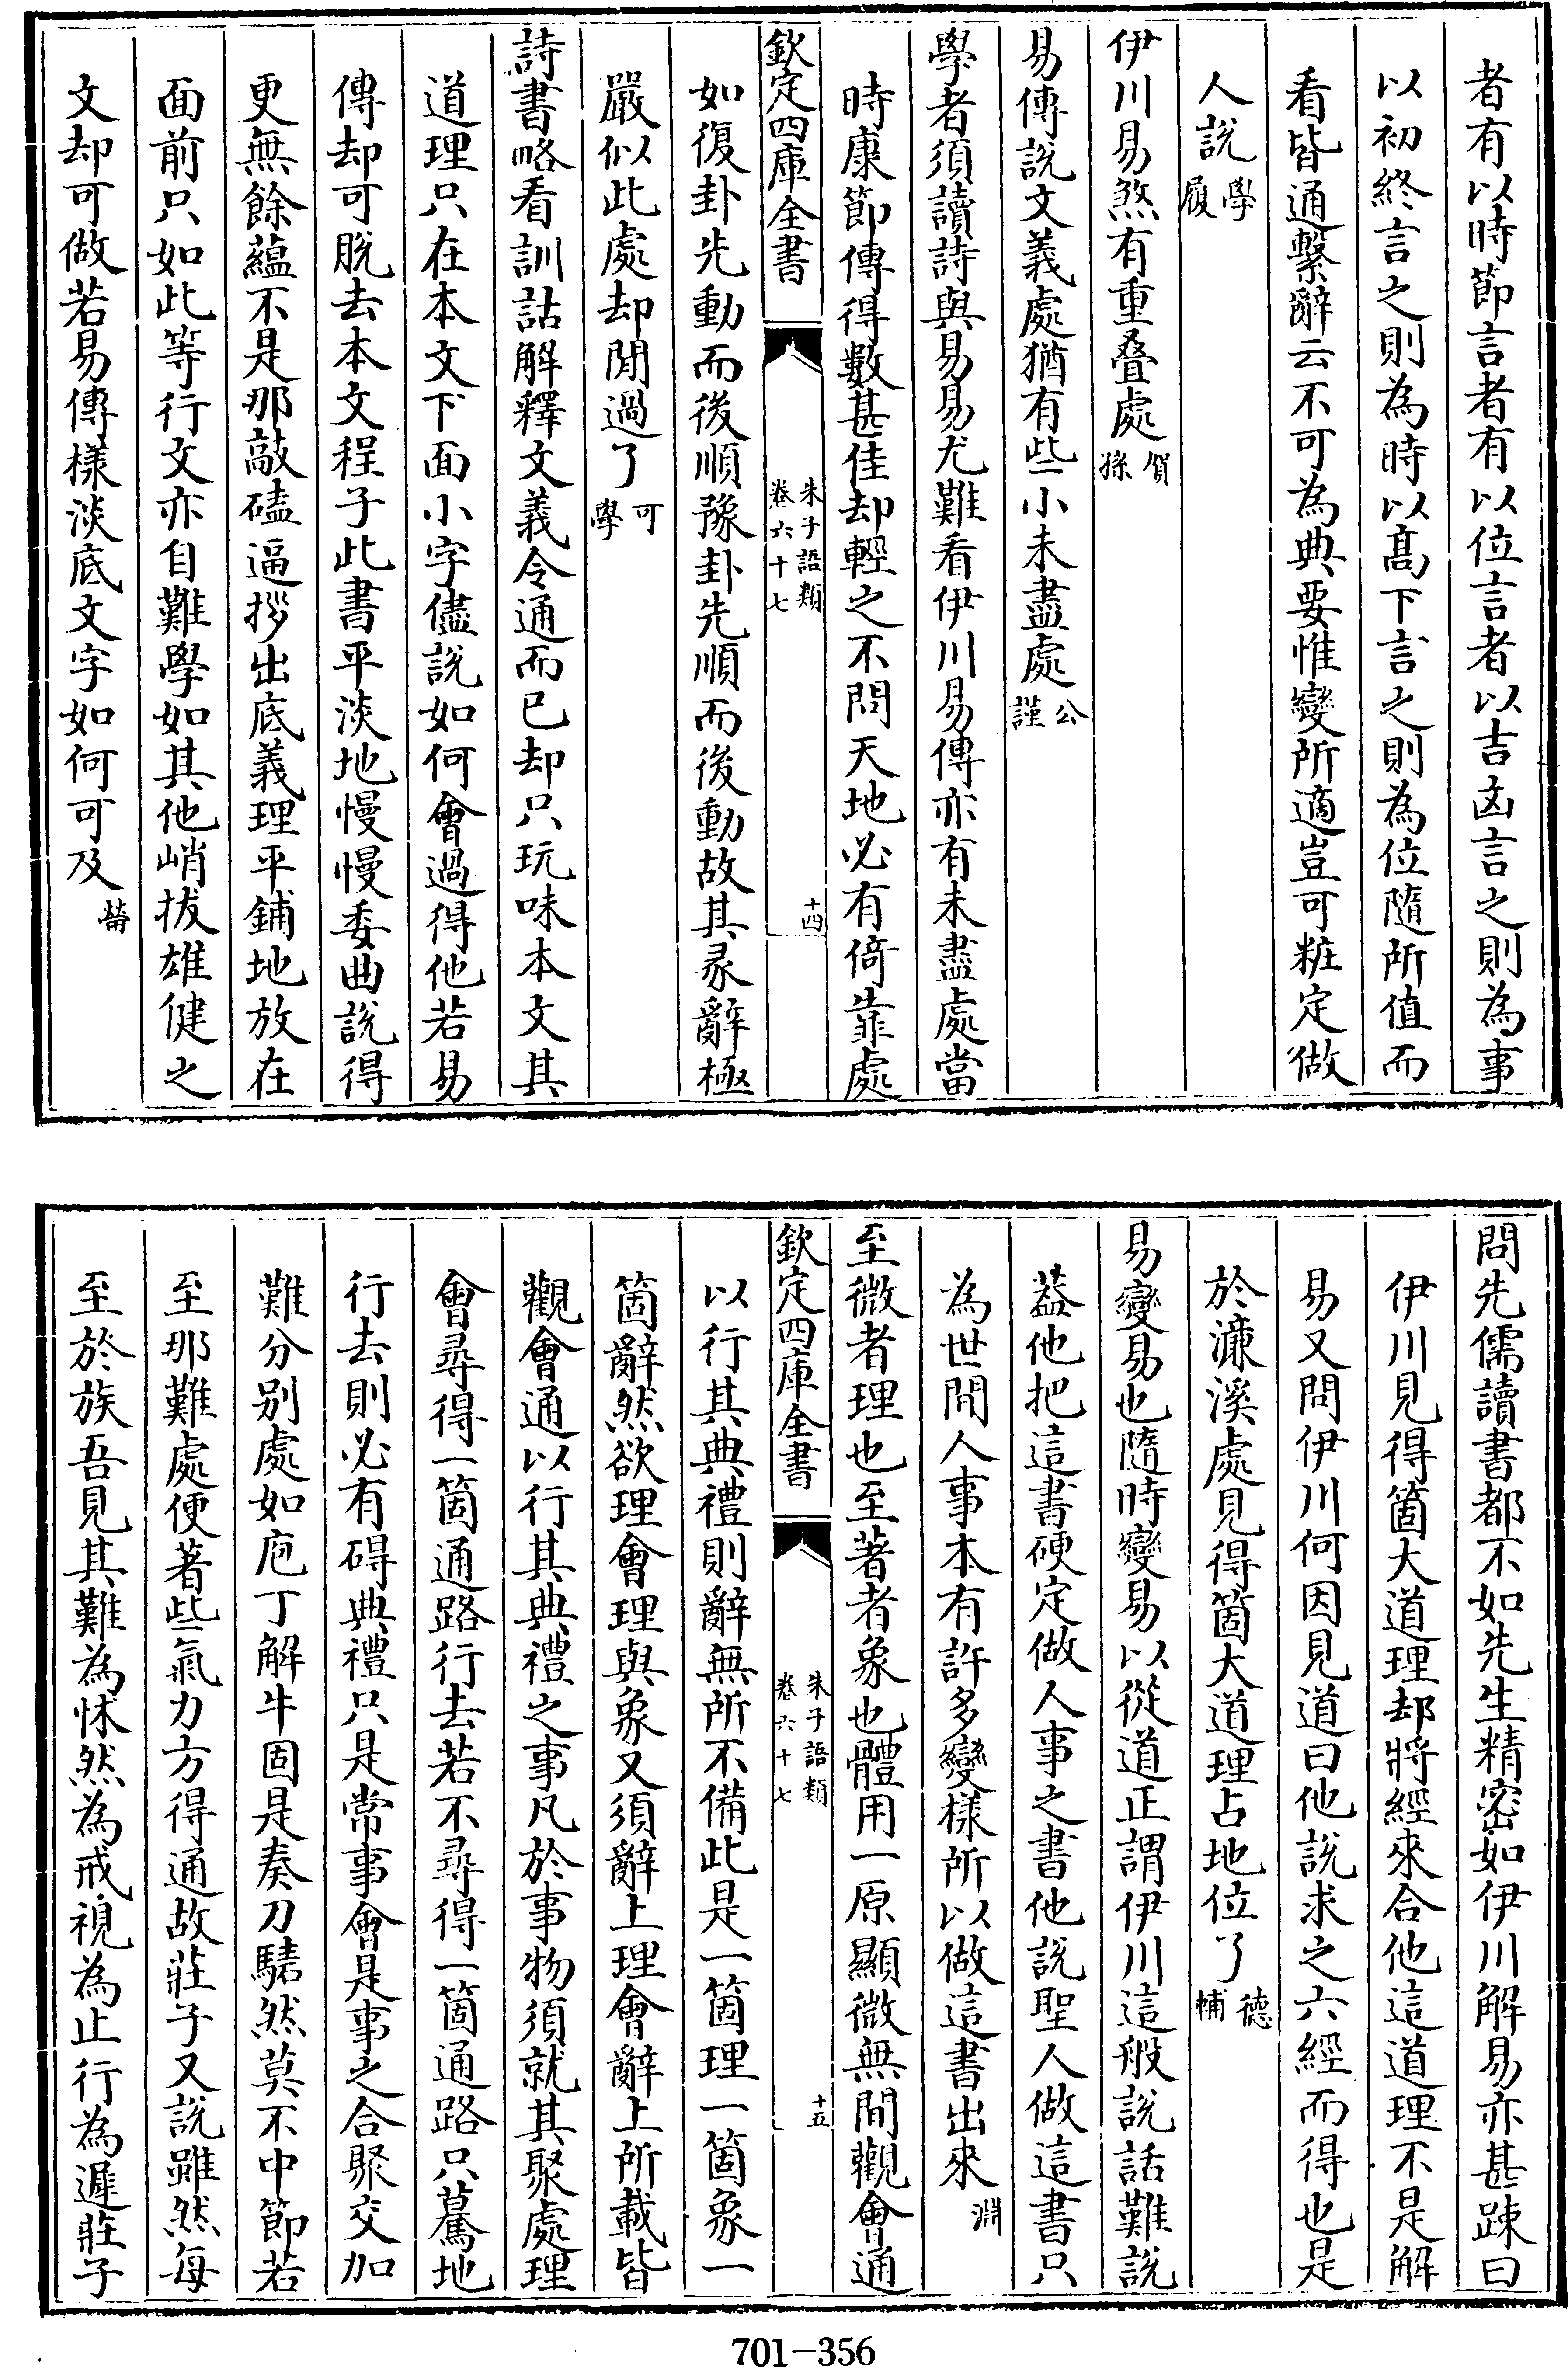 者有以時節言者有以位言者以吉凶言之則為事
以初終言之則為時以髙下言之則為位隨所值而
看皆通繫辭云不可為典要惟變所適豈可粧定做
人說學履
伊川易煞有重叠處賀孫
易傳說文義處猶有些小未盡處公謹
學者須讀詩與易易尤難看伊川易傳亦有未盡處當
時康節傳得數甚佳却輕之不問天地必有倚靠處
欽定四庫全書 朱子語類 卷六十七 十四
如復卦先動而後順豫卦先順而後動故其彖辭極
嚴似此處却閒過了可學
詩書略看訓詁解釋文義令通而已却只玩味本文其
道理只在本文下面小字儘說如何會過得他若易
傳却可脫去本文程子此書平淡地慢慢委曲說得
更無餘蘊不是那敲磕逼拶出底義理平鋪地放在
面前只如此等行文亦自難學如其他峭拔雄健之
文却可做若易傳樣淡底文字如何可及㽦
問先儒讀書都不如先生精密如伊川解易亦甚踈曰
伊川見得箇大道理却將經來合他這道理不是解
易又問伊川何因見道曰他說求之六經而得也是
於濂溪處見得箇大道理占地位了德輔
易變易也隨時變易以從道正謂伊川這般說話難說
葢他把這書硬定做人事之書他說聖人做這書只
為世間人事本有許多變樣所以做這書出來淵
至微者理也至著者象也體用一原顯微無間觀會通
欽定四庫全書 朱子語類 卷六十七 十五
以行其典禮則辭無所不備此是一箇理一箇象一
箇辭然欲理會理與象又須辭上理會辭上所載皆
觀會通以行其典禮之事凡於事物須就其聚處理
會尋得一箇通路行去若不尋得一箇通路只驀地
行去則必有碍典禮只是常事會是事之合聚交加
難分别處如庖丁解牛固是奏刀騞然莫不中節若
至那難處便著些氣力方得通故莊子又說雖然每
至於族吾見其難為怵然為戒視為止行為遲莊子
701-356